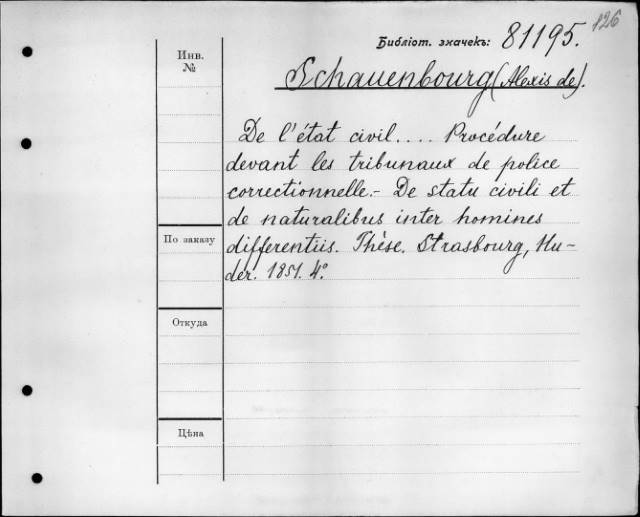 126
Библіот. значекъ: 81195.
Инв.
№
Schauenbourg (Alexis de).
De l'état civil.... Procédure
devant les tribunaux de police
correctionnelle.- De statu civili et
de naturalibus inter homines
differentiis. Thèse. Strasbourg, Hu-
der. 1851. 4°.
По заказу
Откуда
Цѣна